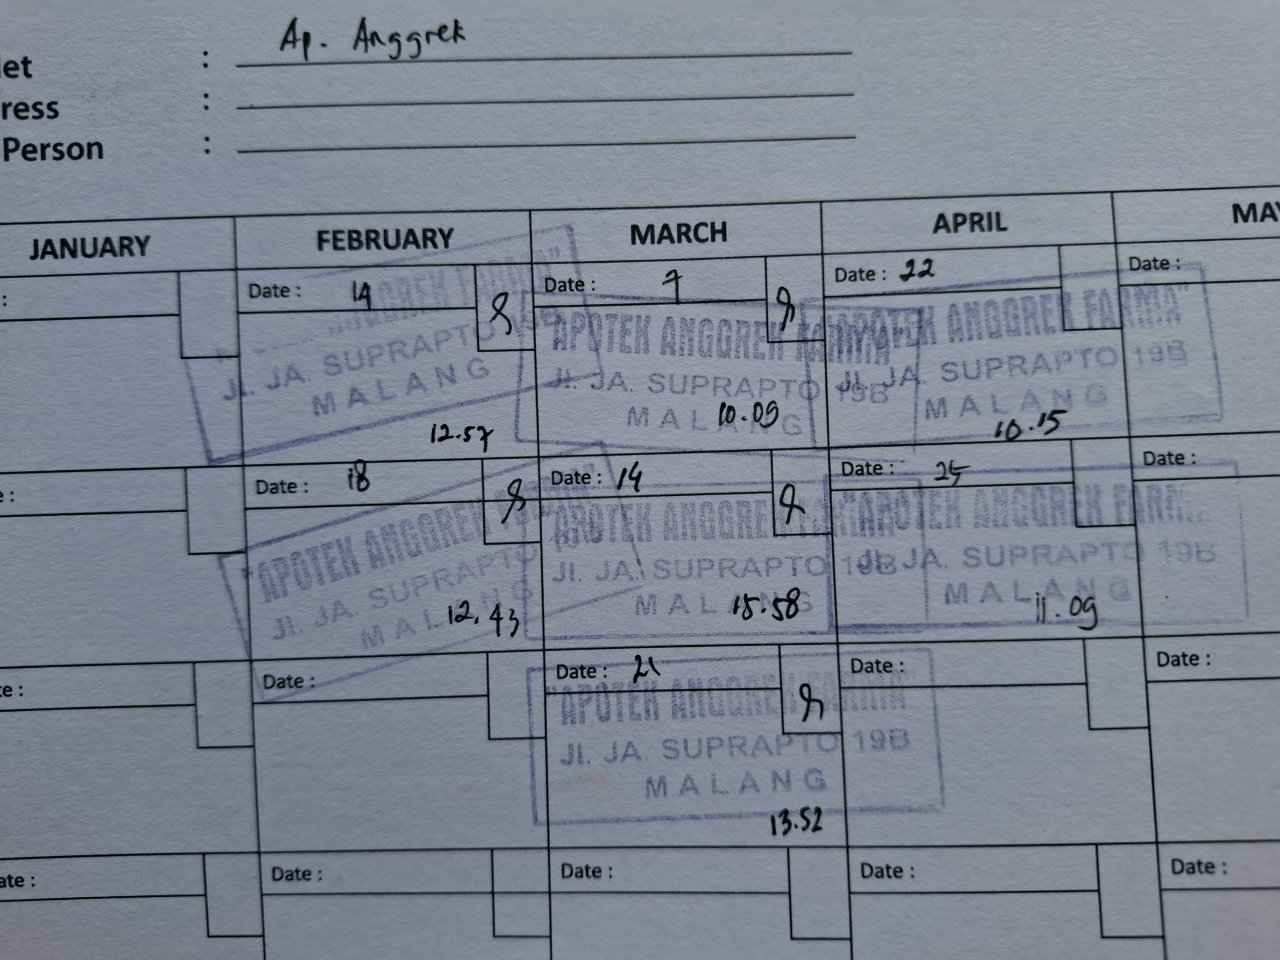 et : Ap. Anggrek
ress :
Person :
JANUARY FEBRUARY MARCH APRIL MAY
: Date : 14 Date : 7 Date : 22 Date :
ANGGREK FARMA"
JL. JA. SUPRAPTO
MALANG
12.57
"APOTEK ANGGREK FARMA"
Jl. JA. SUPRAPTO 19B
MALANG
10.09
"APOTEK ANGGREK FARMA"
Jl. JA. SUPRAPTO 19B
MALANG
10.15
e : Date : 18 Date : 14 Date : 25 Date :
"APOTEK ANGGREK
Jl. JA. SUPRAPTO
MALANG
12.43
"APOTEK ANGGREK FARMA
Jl. JA. SUPRAPTO 19B
MALANG
15.58
"APOTEK ANGGREK FARM
Jl. JA. SUPRAPTO 19B
MALANG
11.09
te : Date : Date : 21 Date : Date :
"APOTEK ANGGREK FARMA"
Jl. JA. SUPRAPTO 19B
MALANG
13.52
ate : Date : Date : Date : Date :